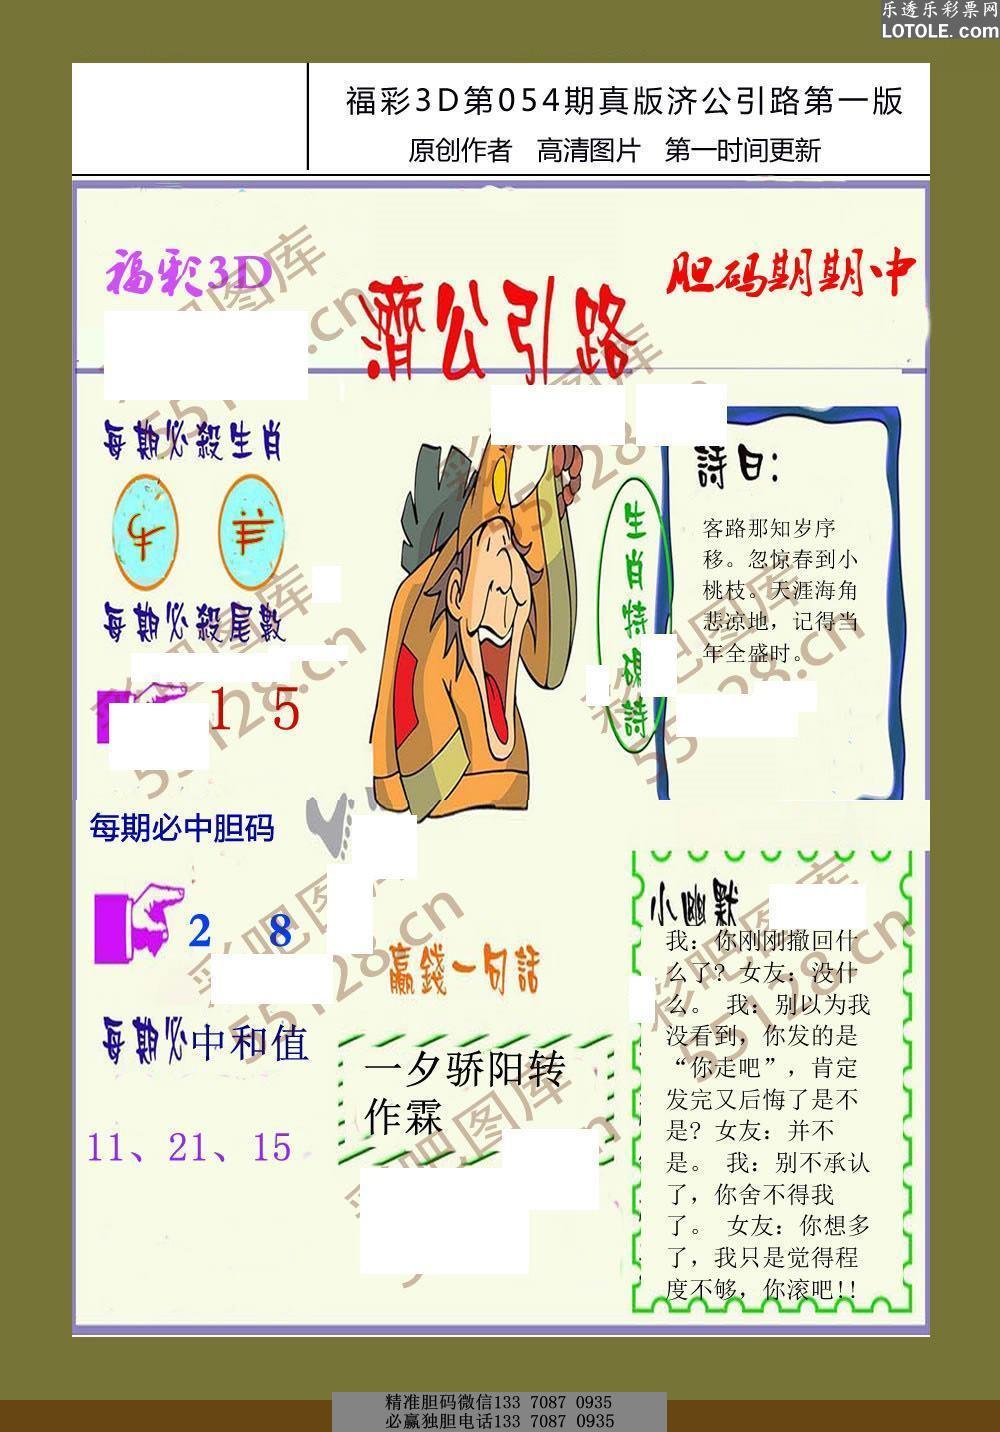 乐透乐彩票网
LOTOLE.com
福彩3D第054期真版济公引路第一版
原创作者 高清图片 第一时间更新
福彩3D
濟公引路
胆码期期中
每期必殺生肖
牛 羊
每期必殺尾數
1 5
每期必中胆码
2 8
每期必中和值
11、21、15
生肖特碼詩
詩曰:
客路那知岁序
移。忽惊春到小
桃枝。天涯海角
悲凉地，记得当
年全盛时。
赢錢一句話
一夕骄阳转
作霖
小幽默
我：你刚刚撤回什
么了? 女友：没什
么。 我：别以为我
没看到，你发的是
“你走吧”，肯定
发完又后悔了是不
是? 女友：并不
是。 我：别不承认
了，你舍不得我
了。 女友：你想多
了，我只是觉得程
度不够，你滚吧!!
彩吧图库
55128.cn
精准胆码微信133 7087 0935
必赢独胆电话133 7087 0935